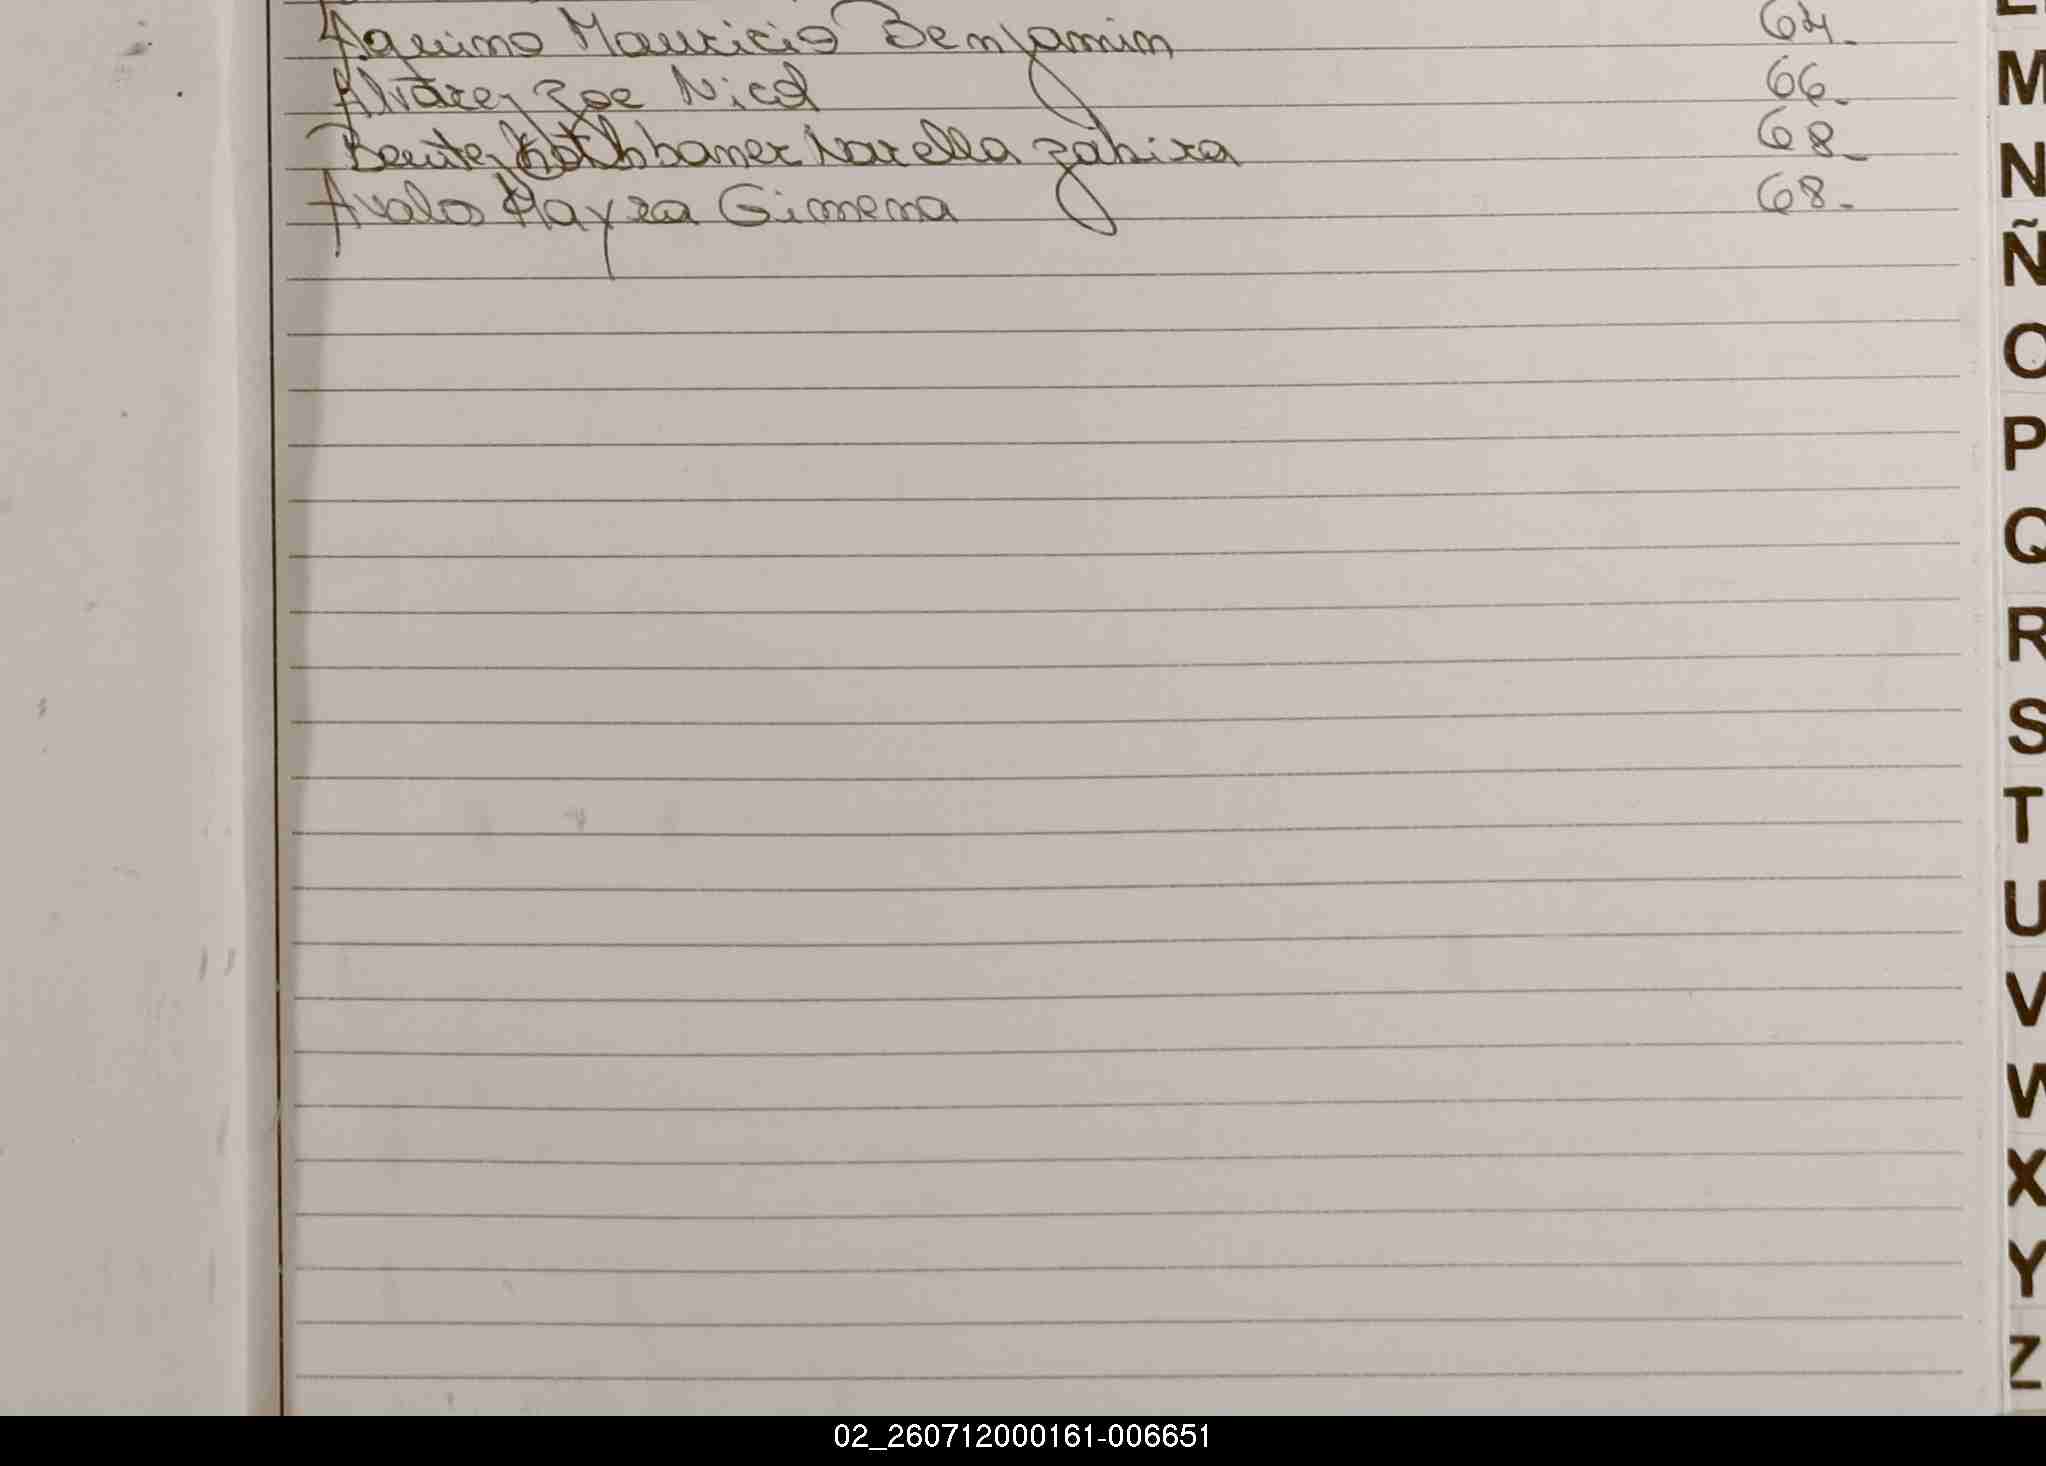 Aquino Mauricio Benjamin 64-
Alvarez Zoe Nicol 66-
Benitez Narella Zahira 68-
Avalo Mayra Gimena 68-
M
N
Ñ
O
P
Q
R
S
T
U
V
W
X
Y
Z
02_260712000161-006651